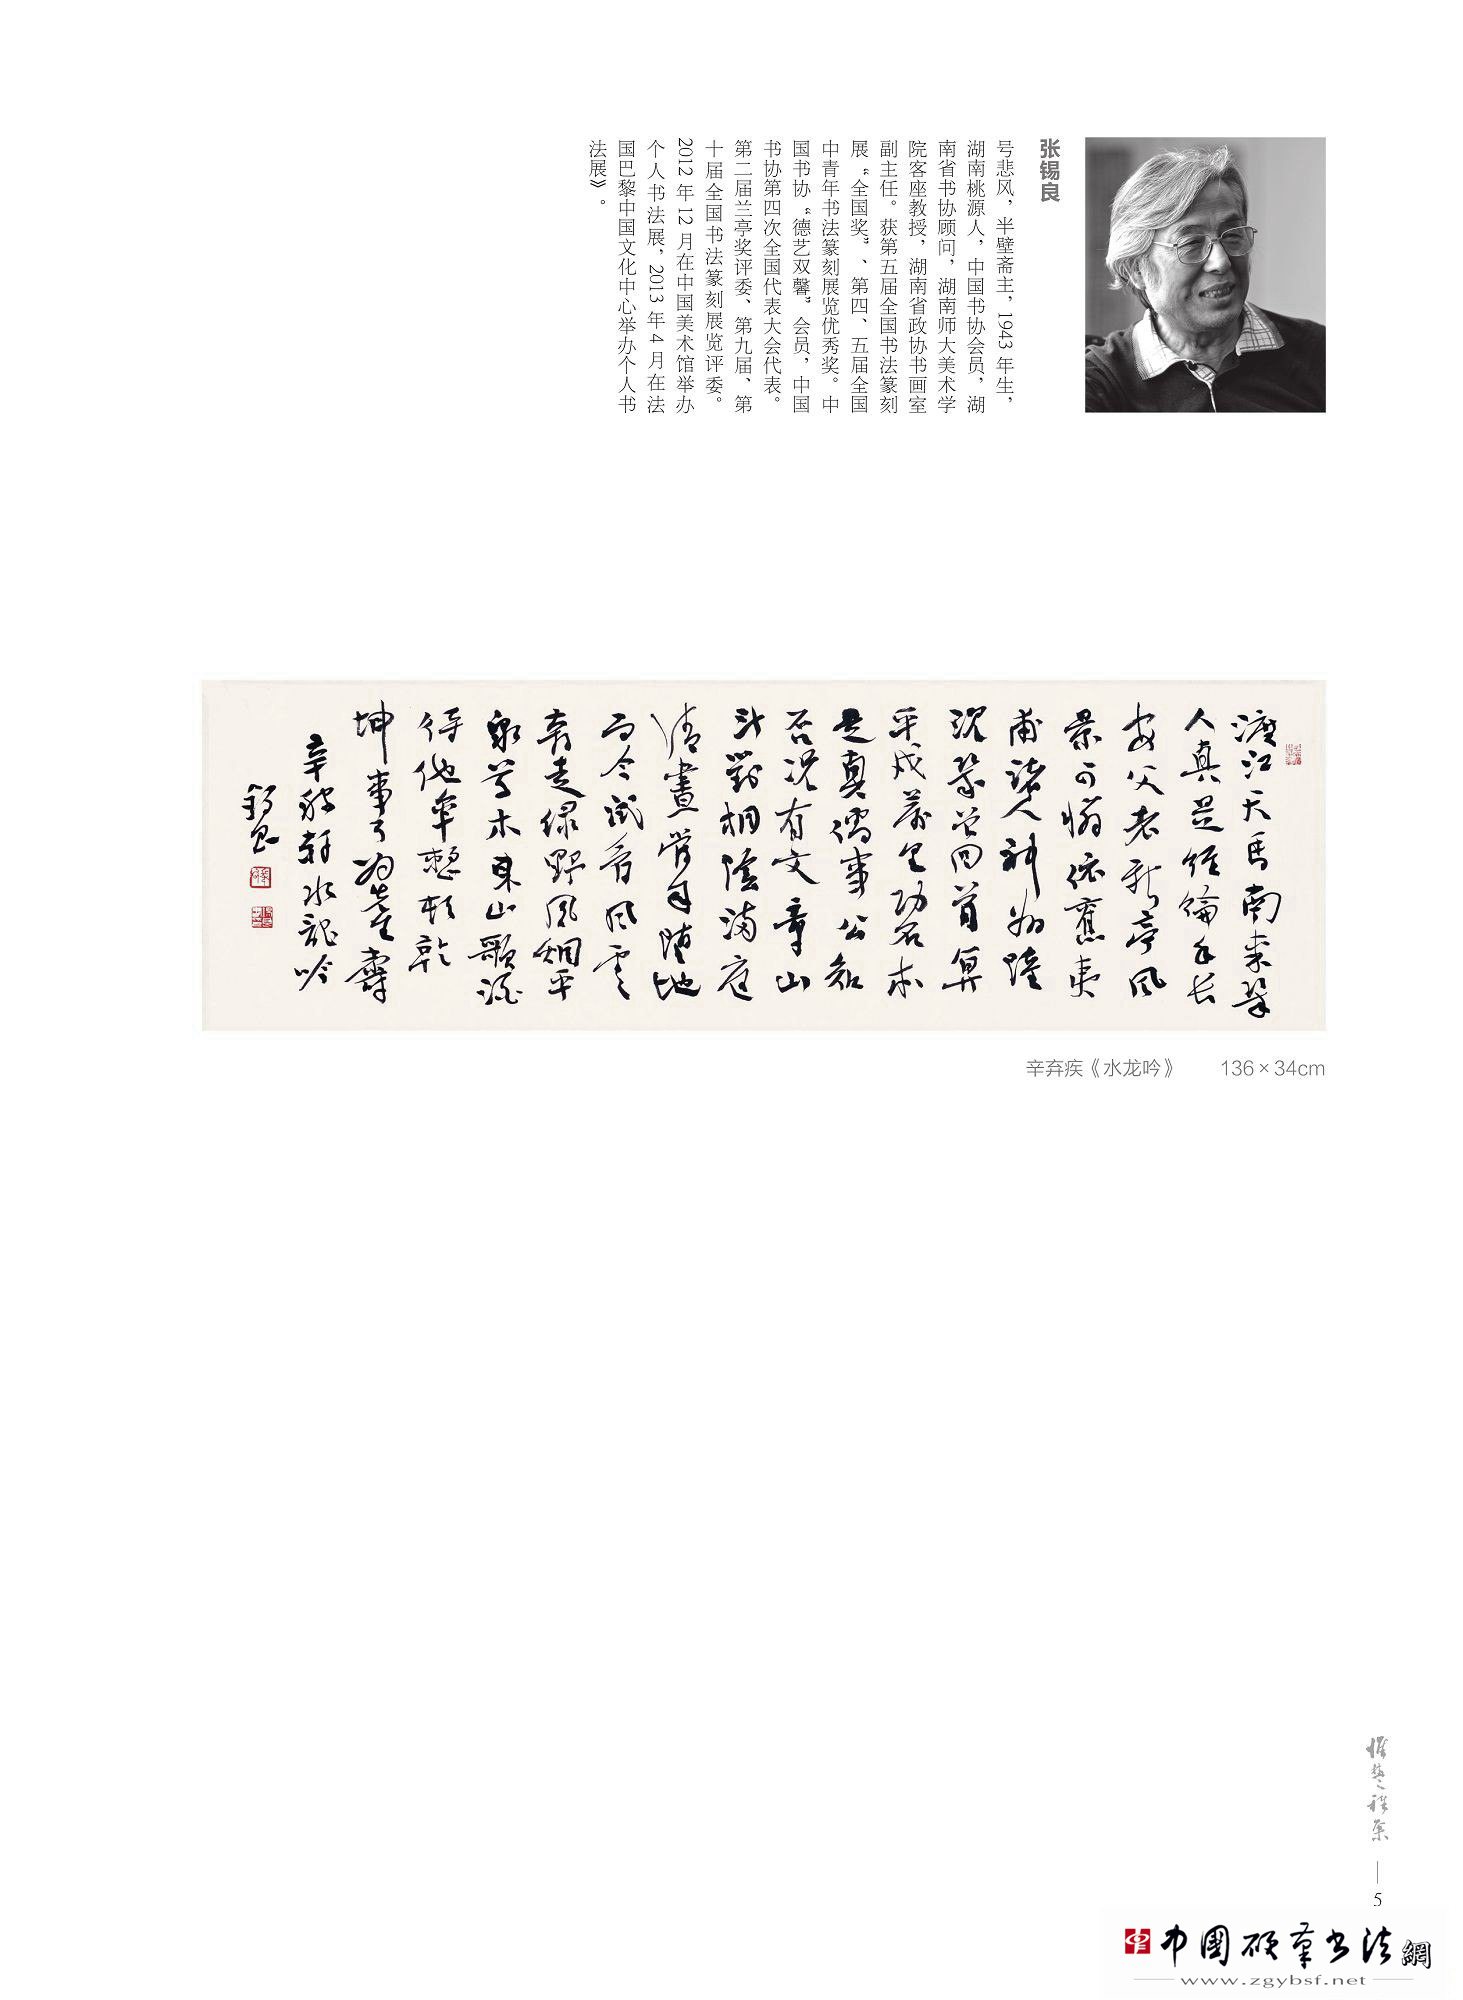 张锡良
号悲风，半壁斋主，1943 年生，
湖南桃源人，中国书协会员，湖
南省书协顾问，湖南师大美术学
院客座教授，湖南省政协书画室
副主任。获第五届全国书法篆刻
展“全国奖”、第四、五届全国
中青年书法篆刻展览优秀奖。中
国书协“德艺双馨”会员，中国
书协第四次全国代表大会代表。
第二届兰亭奖评委、第九届、第
十届全国书法篆刻展览评委。
2012 年 12 月在中国美术馆举办
个人书法展，2013 年 4 月在法
国巴黎中国文化中心举办个人书
法展》。
渡江天馬南來幾
人真是經綸手長
安父老新亭風
景可憐依舊夷
甫諸人神州陸
沉幾曾回首算
平戎萬里功名本
是真儒事公知
否況有文章山
斗對桐陰滿庭
清晝當年墮地
而今試看風雲
奔走緑野風烟平
泉草木東山歌酒
待他年整頓乾
坤事了為先生壽
辛稼軒水龍吟
錫良
辛弃疾《水龙吟》 136×34cm
5
中国硬笔书法網
www.zgybsf.net